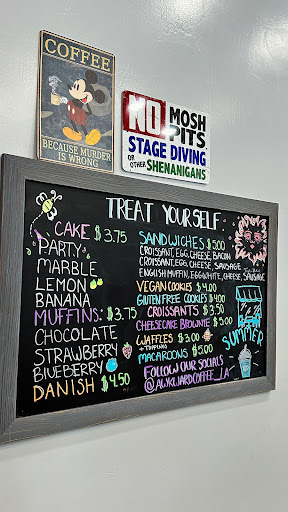 COFFEE
BECAUSE MURDER
IS WRONG
NO MOSH
PITS,
STAGE DIVING
OR OTHER SHENANIGANS
TREAT YOURSELF
CAKE $3.75
PARTY
MARBLE
LEMON
BANANA
MUFFINS: $3.75
CHOCOLATE
STRAWBERRY
BLUEBERRY
DANISH $4.50
SANDWICHES $5.00
CROISSANT, EGG, CHEESE, BACON
CROISSANT, EGG, CHEESE, SAUSAGE
ENGLISH MUFFIN, EGGWHITE, CHEESE, SAUSAGE
VEGAN COOKIES $4.00
GLUTEN FREE COOKIES $4.00
CROISSANTS $3.50
CHEESECAKE BROWNIE $5.00
WAFFLES $3.00
+ TOPPING
MACAROONS $5.00
FOLLOW OUR SOCIALS
@AWKWARDCOFFEE_LA
SUMMER